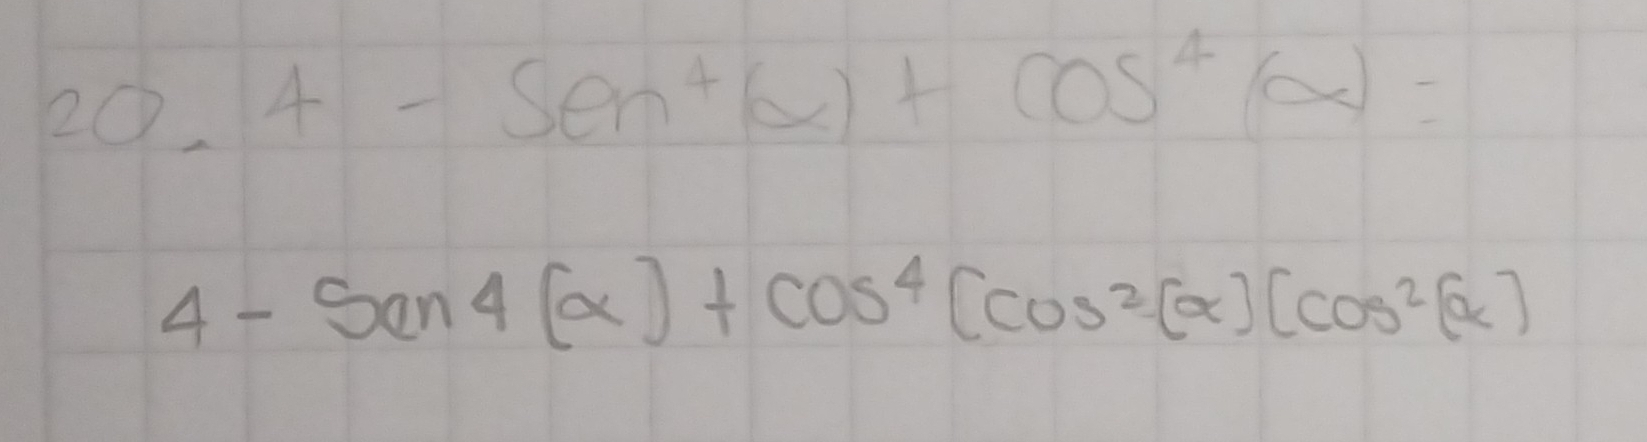 20. 4 - Sen⁴(α) + COS⁴(α) =
4 - Sen4(α) + COS⁴(cos²(α)(cos²(α)